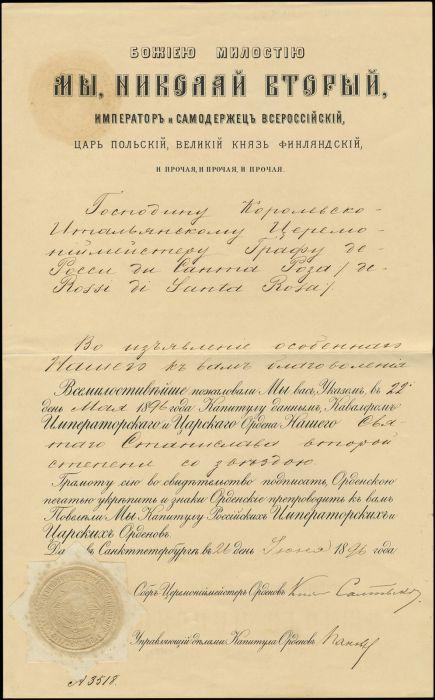 БОЖІЕЮ МИЛОСТІЮ
МЫ, НИКОЛАЙ ВТОРЫЙ,
ИМПЕРАТОРЪ и САМОДЕРЖЕЦЪ ВСЕРОССІЙСКІЙ,
ЦАРЬ ПОЛЬСКІЙ, ВЕЛИКІЙ КНЯЗЬ ФИНЛЯНДСКІЙ,
И ПРОЧАЯ, И ПРОЧАЯ, И ПРОЧАЯ.
Господину Королевско-
Итальянскому Церемо-
ніймейстеру Графу де-
Росси ди Санта Роза /de-
Rossi di Santa Rosa/.
Во изъявленіе особеннаго
Нашего къ вамъ благоволенія
Всемилостивѣйше пожаловали Мы васъ, Указомъ, въ 22й
день Мая 1896 года Капитулу даннымъ, Кавалеромъ
Императорскаго и Царскаго Ордена Нашего Свя-
таго Станислава второй
степени со звѣздою.
Грамоту сію во свидѣтельство подписать, Орденскою
печатью укрѣпить и знаки Орденскіе препроводить къ вамъ
Повелѣли Мы Капитулу Россійскихъ Императорскихъ и
Царскихъ Орденовъ.
Въ Санктпетербургѣ въ 26 день Іюня 1896 года
Оберъ Церемоніймейстеръ Орденовъ
Управляющій дѣлами Капитула Орденовъ
№ 3518.